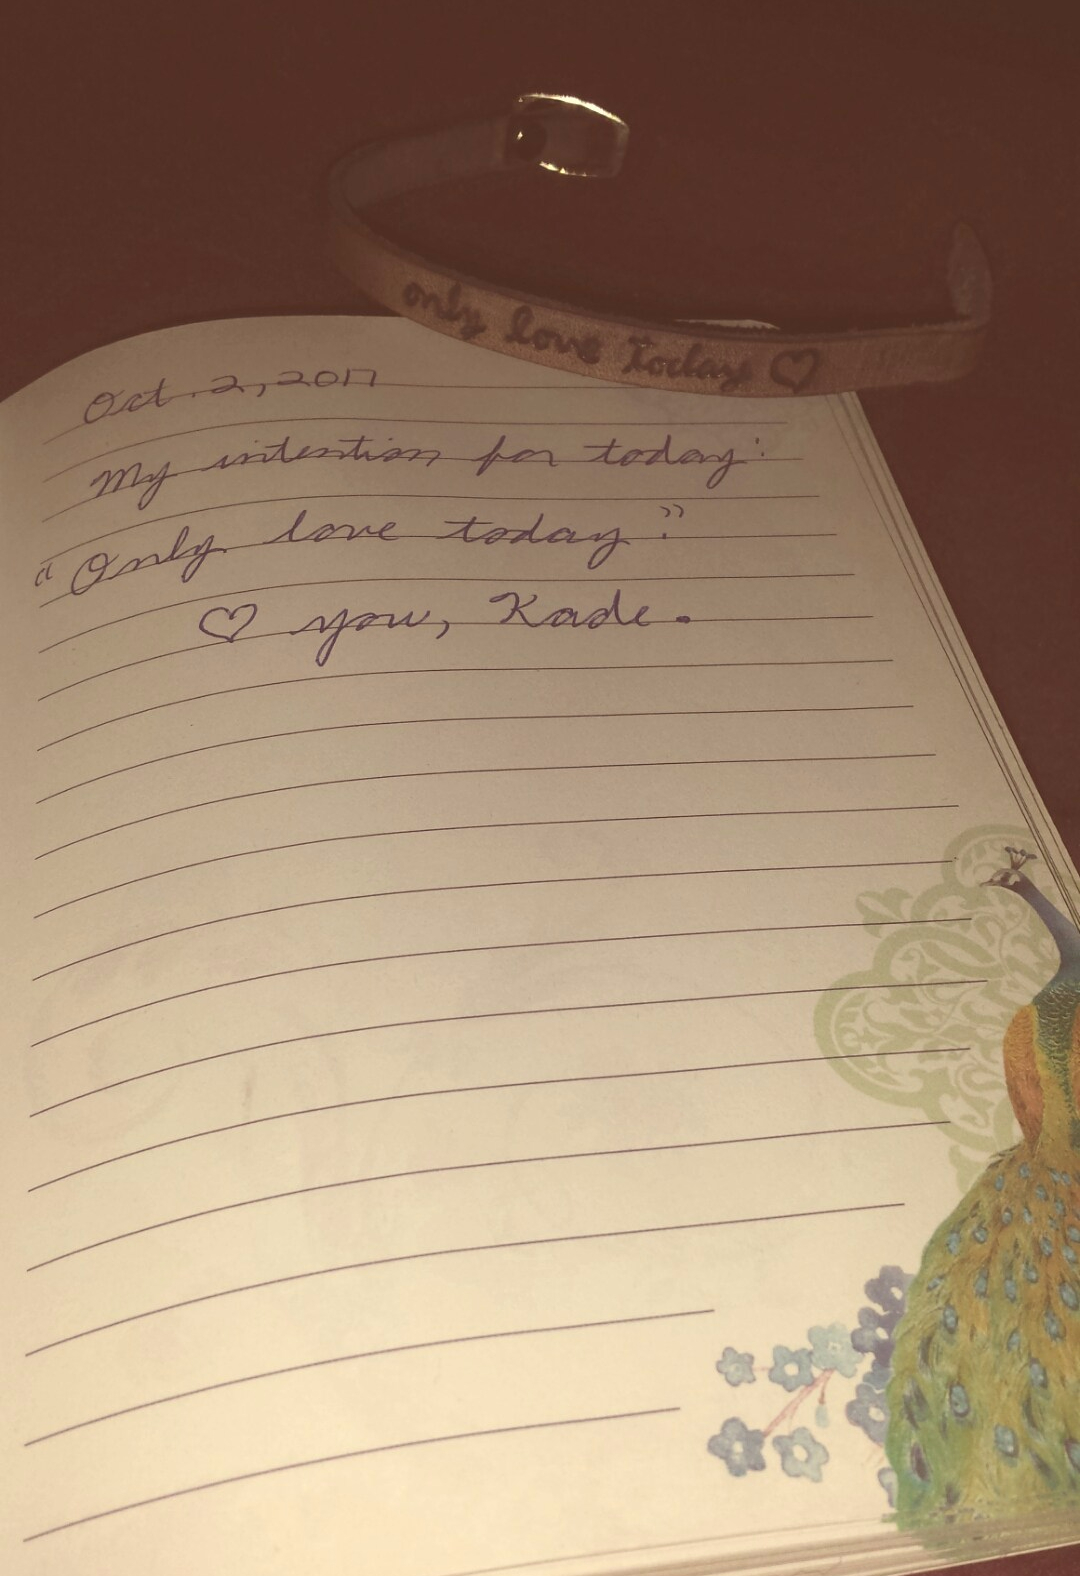 only love today ♡
Oct. 2, 2017
My intention for today:
"Only love today."
♡ you, Kade.